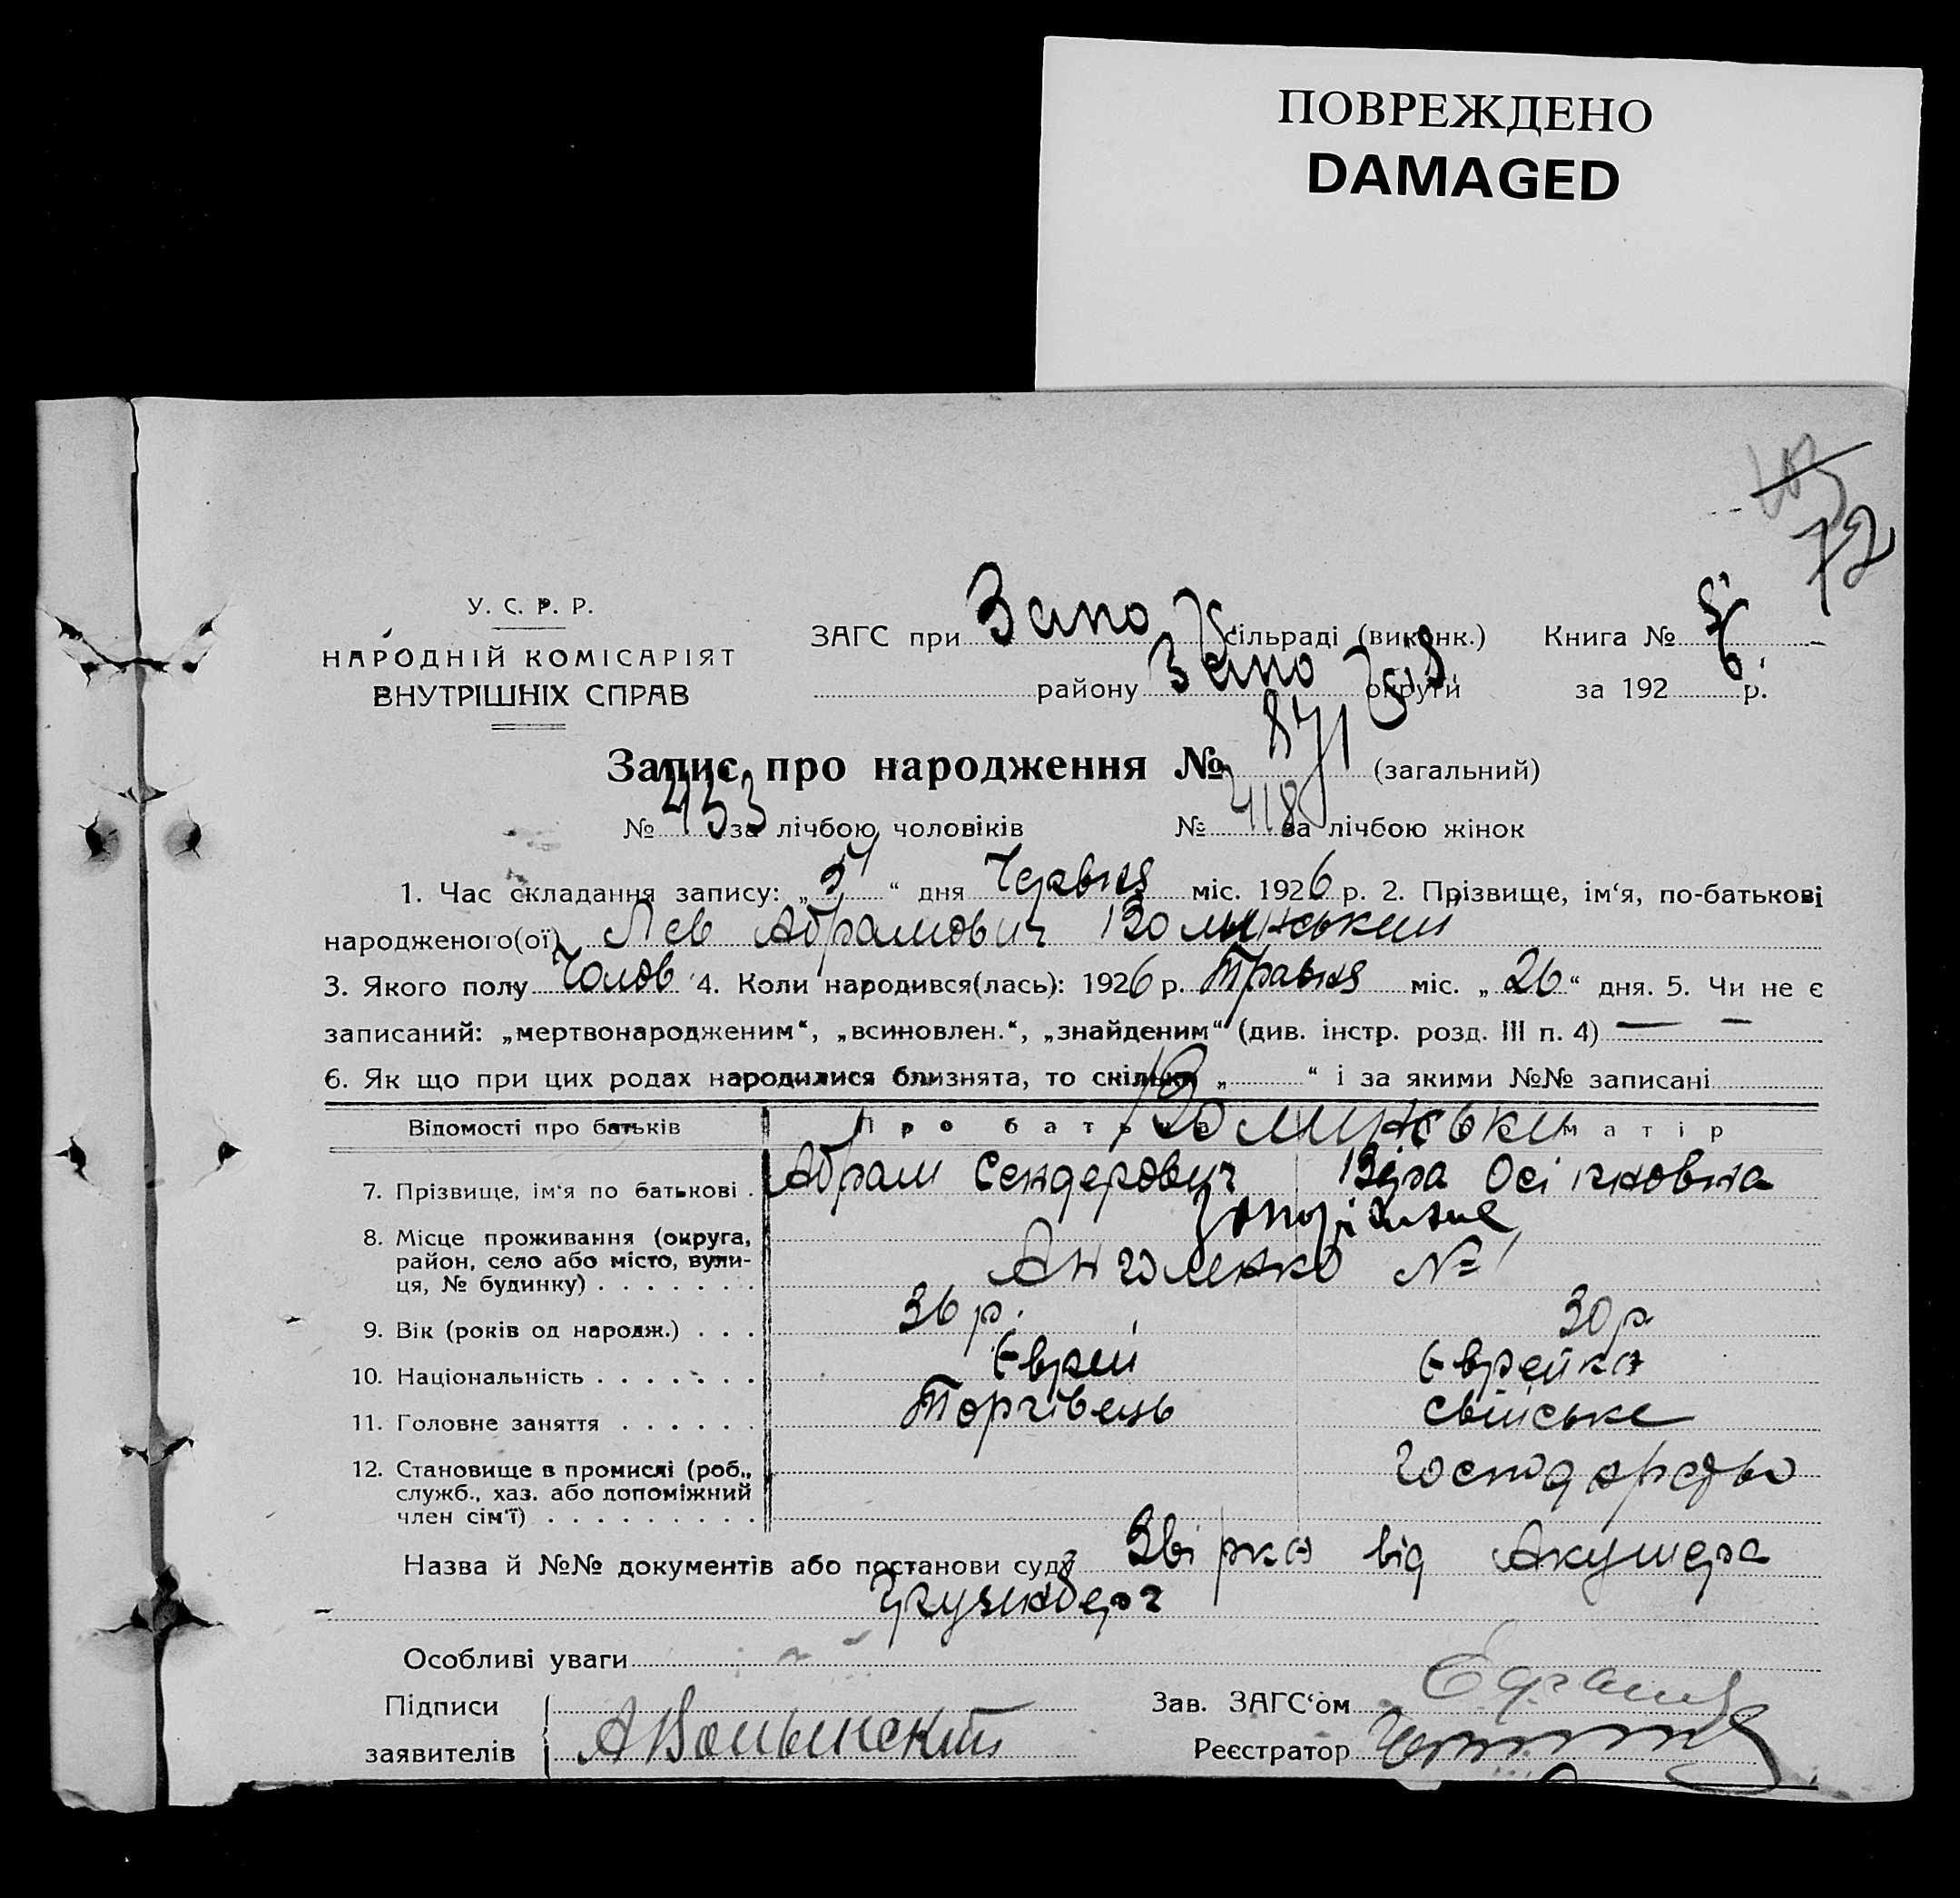 ПОВРЕЖДЕНО
DAMAGED
72
У. С. Р. Р.
НАРОДНІЙ КОМІСАРІЯТ
ВНУТРІШНІХ СПРАВ
ЗАГС при Запо сільраді (виконк.) Книга №
району Запо округи за 192 6 р.
Запис про народження № 871 (загальний)
№ 453 за лічбою чоловіків № 418 за лічбою жінок
1. Час складання запису: „ “ дня Червня міс. 1926 р. 2. Прізвище, ім‘я, по-батькові
народженого(ої) Лев Абрамович Волинський
3. Якого полу Чолов 4. Коли народився(лась): 1926 р. Травня міс. „26“ дня. 5. Чи не є
записаний: „мертвонародженим“, „всиновлен.“, „знайденим“ (див. інстр. розд. III п. 4) — —
6. Як що при цих родах народилися близнята, то скільки „ “ і за якими №№ записані
Відомості про батьків Про батька матір
Волинськи
7. Прізвище, ім‘я по батькові . Абрам Сендерович Віра Осіпновна
8. Місце проживання (округа,
район, село або місто, вули-
ця, № будинку) . . . . . . .
Запоріжжя
Анголенко № 1
9. Вік (років од народж.) . . . 36 р. 30 р
10. Національність . . . . . . . Єврей Єврейка
11. Головне заняття . . . . . . Торгівець свійське
господарство
12. Становище в промислі (роб.,
служб., хаз. або допоміжний
член сім‘ї) . . . . . . . . . .
Назва й №№ документів або постанови суду Звірка від Акушера
Грузинберг
Особливі уваги
Підписи
заявителів АВолынский
Зав. ЗАГС‘ом
Реєстратор